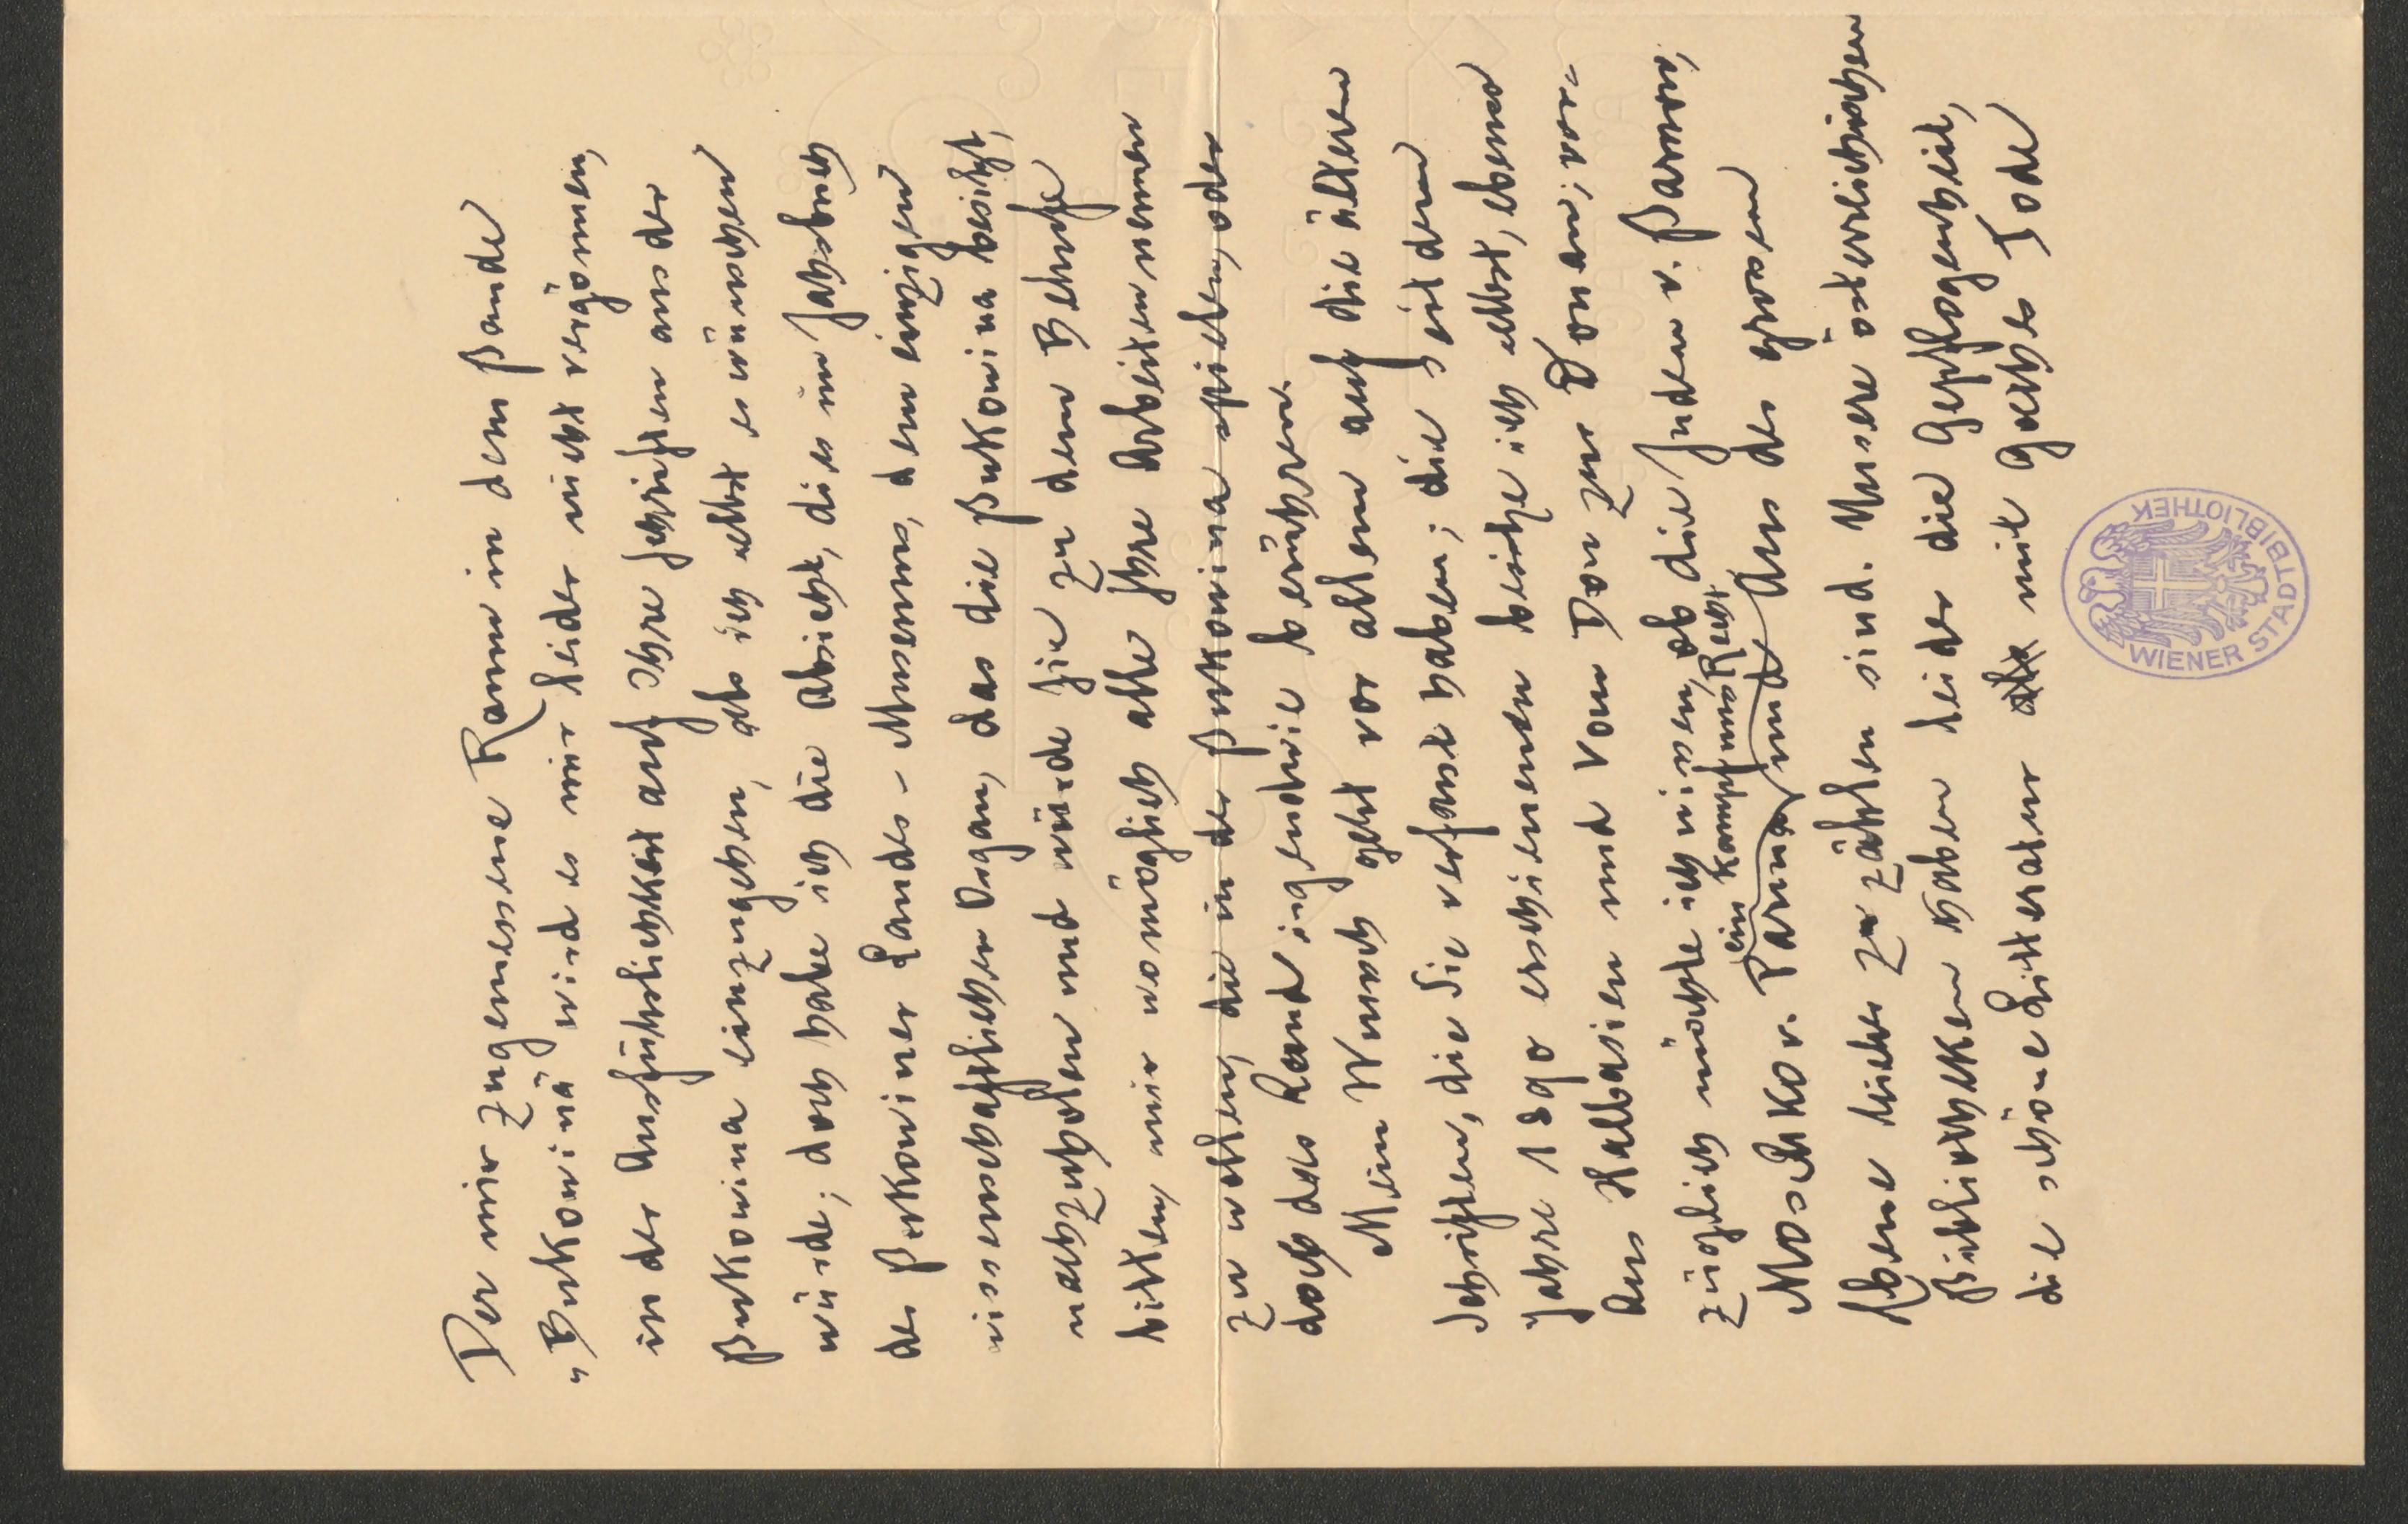 Der mir zugemessene Raum in dem Bande
„Bukowina" wird es mir leider nicht vergönnen,
in der Ausführlichkeit auf Ihre Schriften aus der
Bukowina einzugehen, als ich selbst es wünschen
würde; doch habe ich die Absicht, dies im Jahrbuch
des Bukowiner Landes-Museums, dem einzigen
wissenschaftlichen Organ, das die Bukowina besitzt,
nachzuholen und würde Sie zu dem Behufe
bitten, mir womöglich alle Ihre Arbeiten nennen
zu wollen, die in der Bukowina spielen, oder
doch das Land irgendwie berühren.
Mein Wunsch geht vor allem auf die älteren
Schriften, die Sie verfasst haben; die seit dem
Jahre 1890 erschienenen besitze ich selbst, ebenso
Aus Halbasien und Vom Don zur Donau; vor-
züglich möchte ich wissen, ob die Juden v. Barnow,
Moschko v. Parma, ein Kampf ums Recht und Aus der grossen
Ebene hieher zu zählen sind. Unsere österreichischen
Bibliotheken haben leider die Gepflogenheit,
die schöne Litteratur mit Goethes Tode
WIENER STADTBIBLIOTHEK